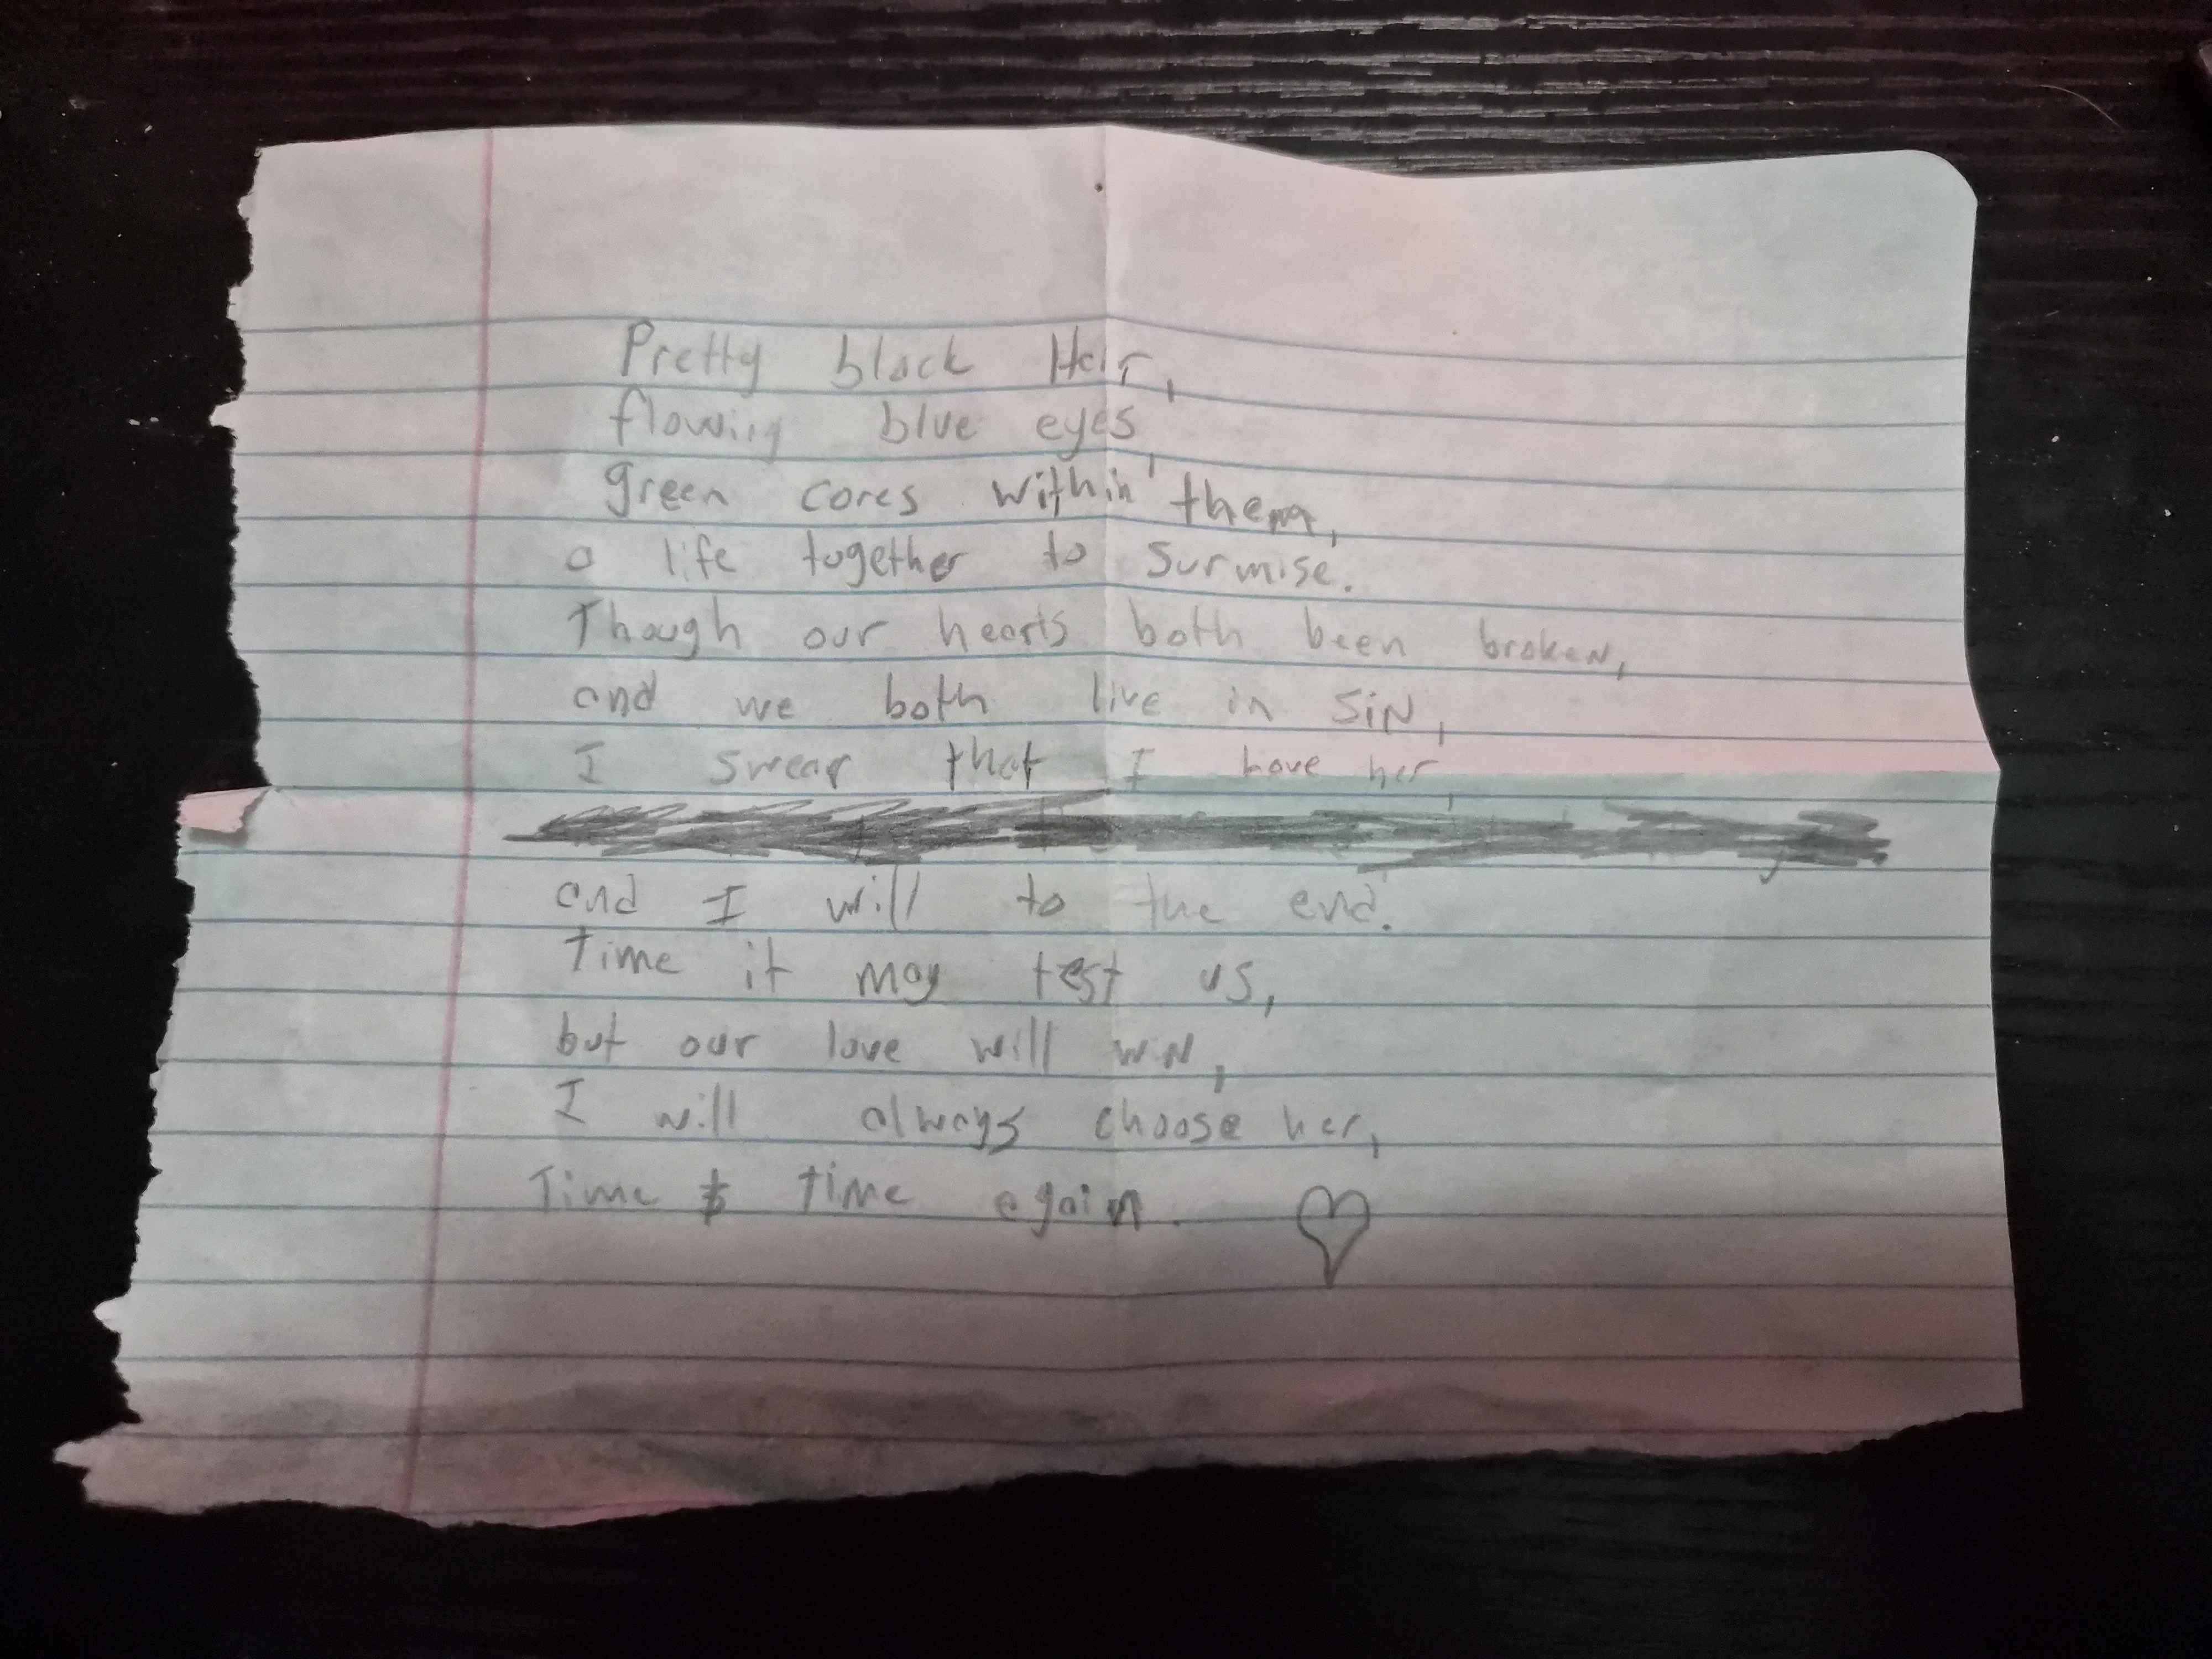 Pretty black Hair,
flowing blue eyes,
green cores within them,
a life together to surmise.
Though our hearts both been broken,
and we both live in SiN,
I swear that I love her,
and I will to the end.
Time it may test us,
but our love will wiN,
I will always choose her,
Time & time again.